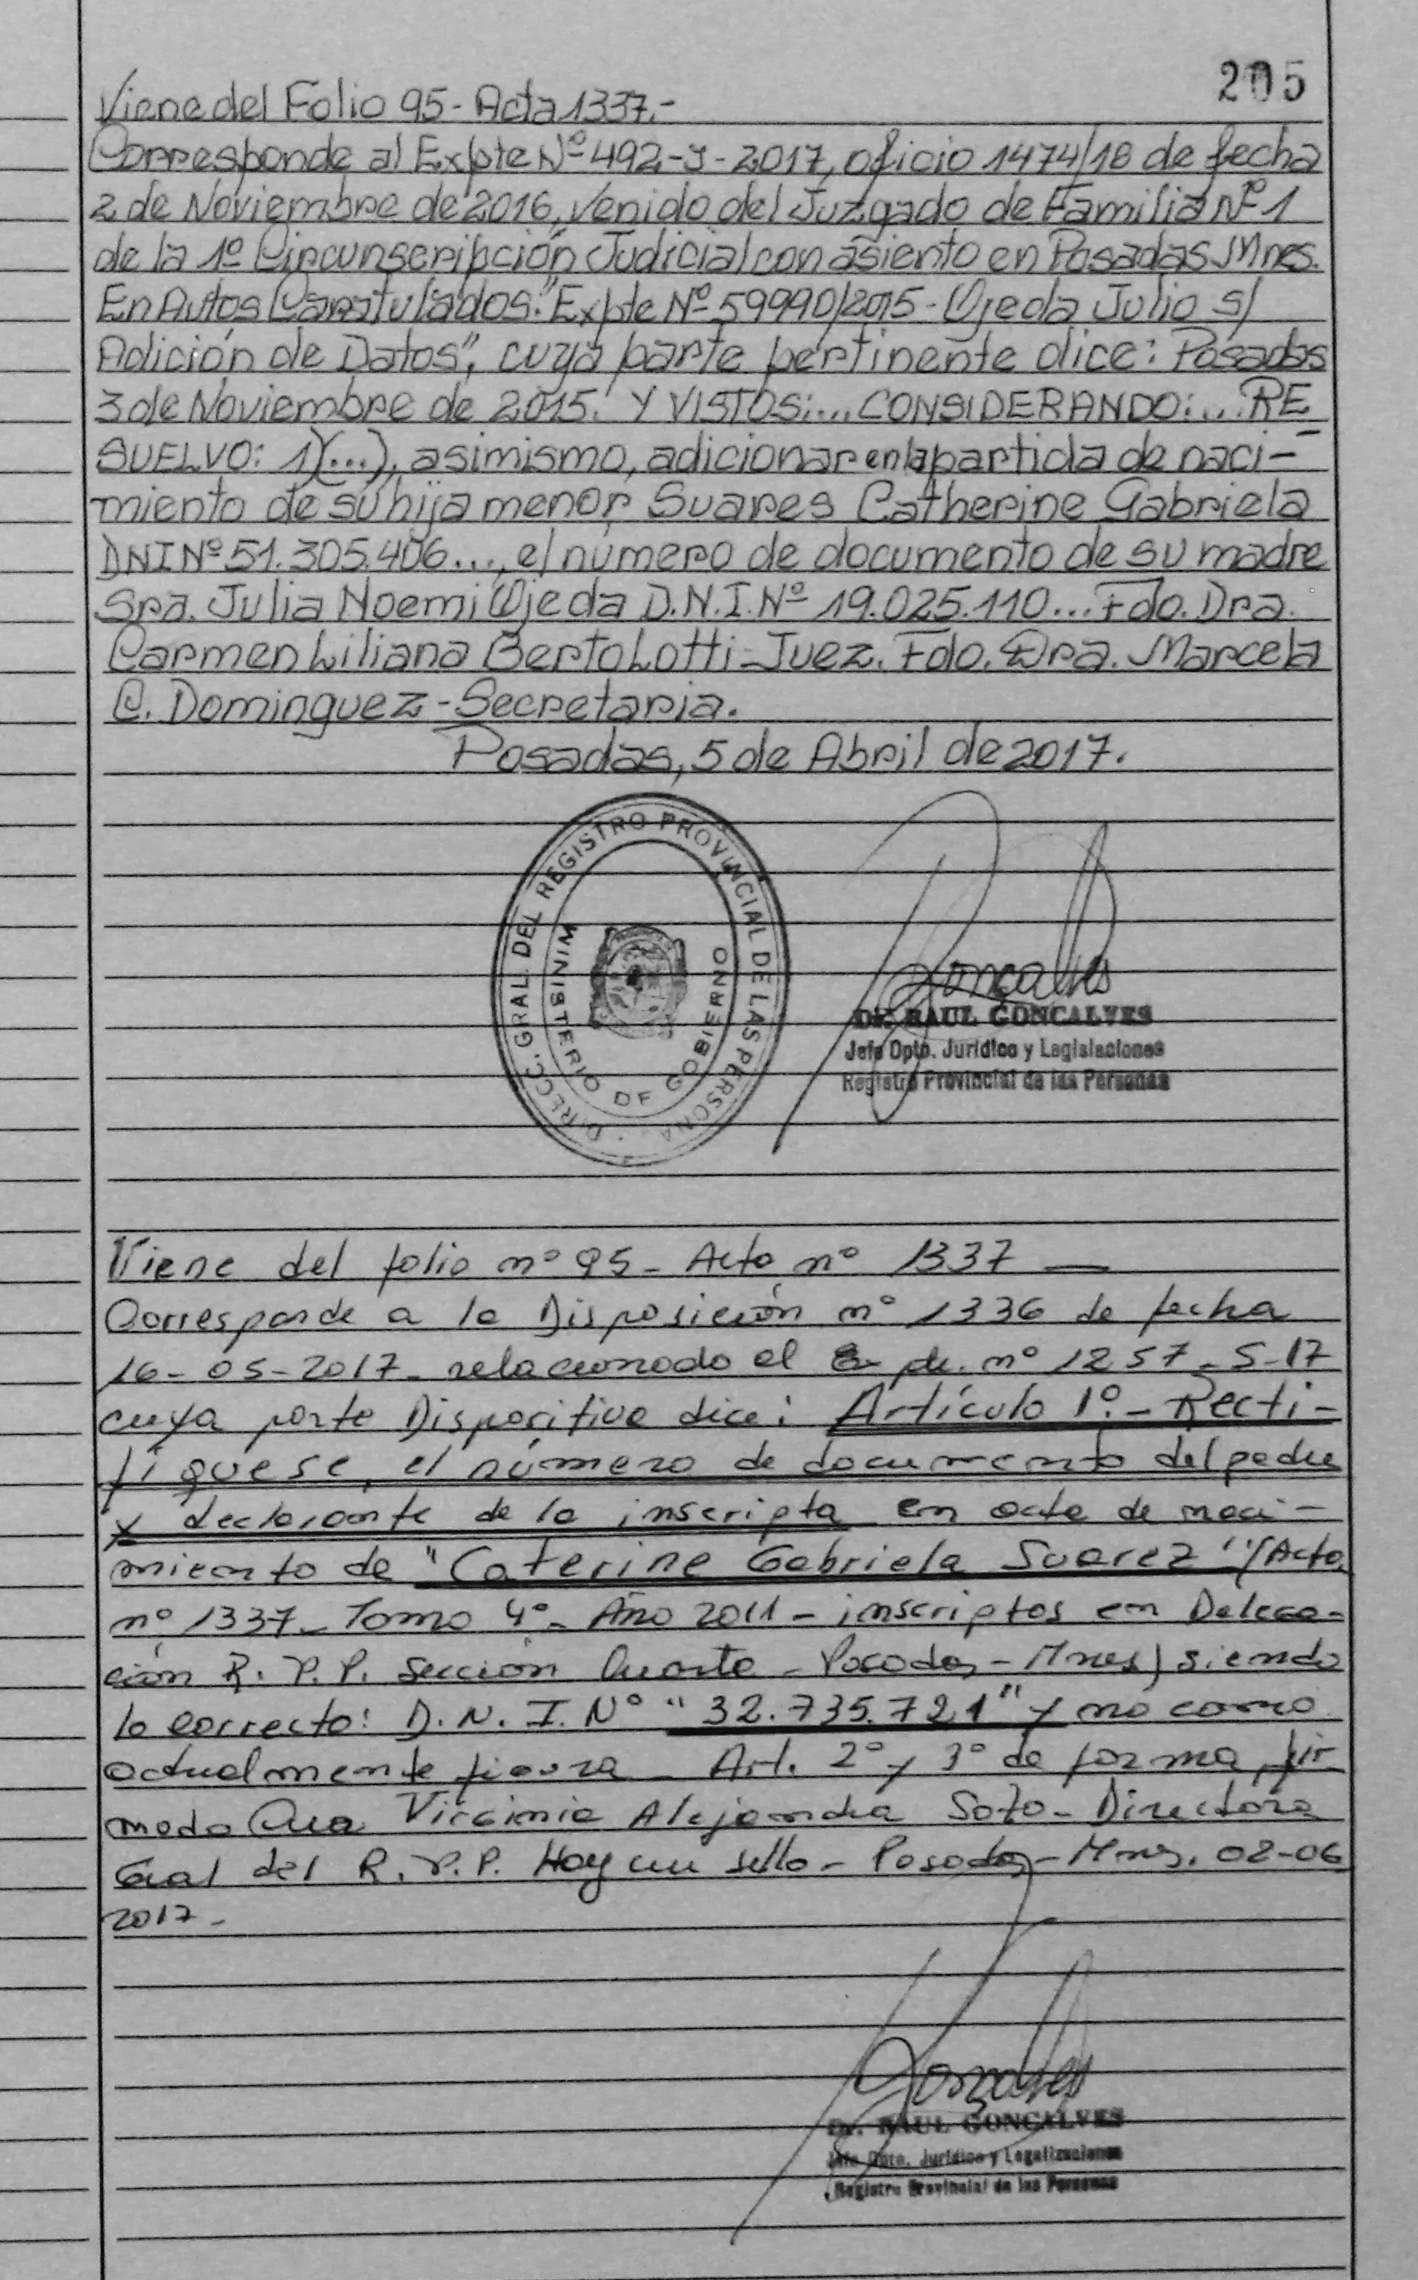 205
Viene del Folio 95 - Acta 1337.-
Corresponde al Expte Nº 492-J-2017, oficio 1474/18 de fecha
2 de Noviembre de 2016, venido del Juzgado de Familia Nº 1
de la 1º Circunscripción Judicial con asiento en Posadas Mnes.
En Autos Caratulados: "Expte Nº 59990/2015 - Ojeda Julio s/
Adición de Datos", cuya parte pertinente dice: Posadas
3 de Noviembre de 2015. Y VISTOS:... CONSIDERANDO:... RE
SUELVO: 1)(...), asimismo, adicionar en la partida de naci-
miento de su hija menor Suares Catherine Gabriela
DNI Nº 51.305.406..., el número de documento de su madre
Sra. Julia Noemi Ojeda D.N.I. Nº 19.025.110... Fdo. Dra.
Carmen Liliana Bertolotti - Juez. Fdo. Dra. Marcela
C. Dominguez - Secretaria.
Posadas, 5 de Abril de 2017.
DIRECC. GRAL. DEL REGISTRO PROVINCIAL DE LAS PERSONA
MINISTERIO DE GOBIERNO
Goncalves
Dr. RAUL GONCALVES
Jefe Dpto. Jurídico y Legislaciones
Registro Provincial de las Personas
Viene del folio nº 95 - Acta nº 1337 —
Corresponde a la Disposición nº 1336 de fecha
16-05-2017 - relacionado al Expte. nº 1257-S-17
cuya parte Dispositiva dice: Artículo 1º.- Recti-
fiquese, el número de documento del padre
y declarante de la inscripta en acta de naci-
miento de "Caterine Gabriela Suarez" (Acta
nº 1337 - Tomo 4º - Año 2011 - inscriptos en Delega-
ción R. P. P. Sección Cuarta - Posadas - Mnes) siendo
lo correcto: D.N.I. Nº "32.735.721" y no como
actualmente figura - Art. 2º y 3º de forma, fir
mado Virginia Alejandra Soto - Directora
Gral del R.P.P. Hay un sello - Posadas - Mnes. 02-06
2017 -
Goncalves
Dr. RAUL GONCALVES
Jefe Dpto. Jurídico y Legalizaciones
Registro Provincial de las Personas